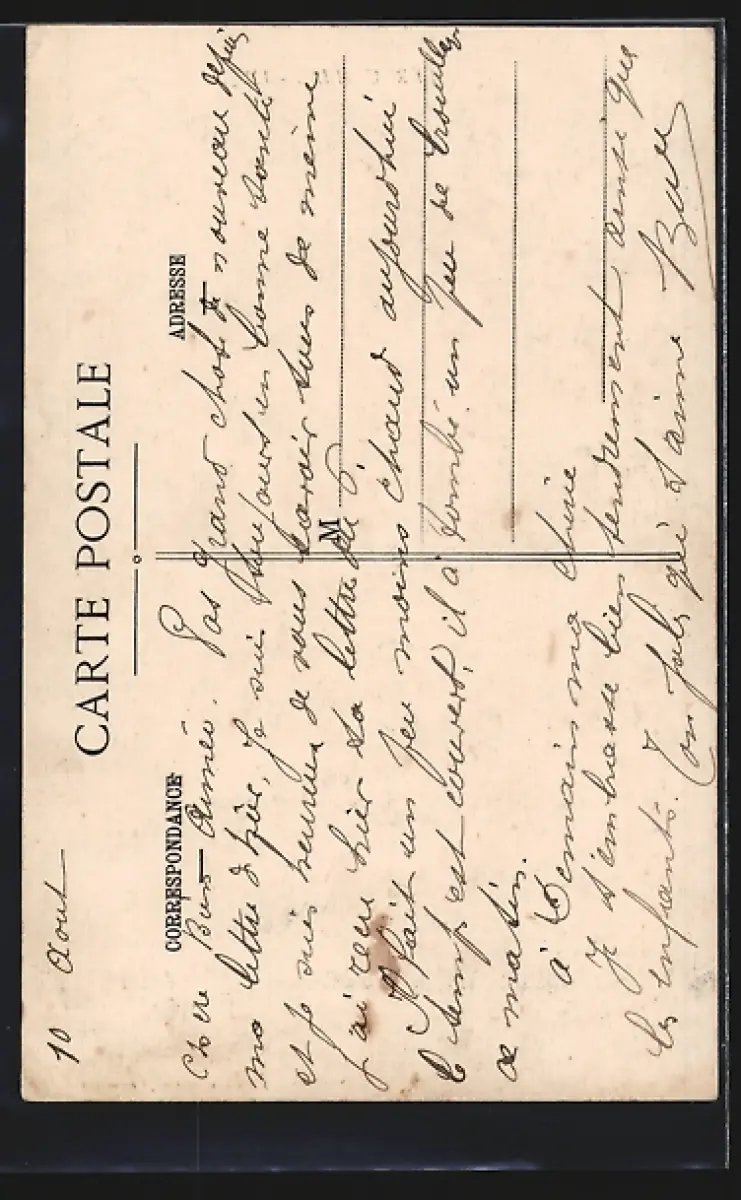 10 Aout
CARTE POSTALE
CORRESPONDANCE
ADRESSE
M
Chere Bien Aimée. Pas grand chose de nouveau depuis
ma lettre d'hier, je suis toujours en bonne santé
et je suis heureux de vous savoir tous de meme
j'ai recu hier ta lettre du 6.
Il fait un peu moins chaud aujourd'hui
le temps est couvert, il a tombé un peu de brouillard
ce matin.
à Demain ma chérie
Je t'embrasse bien tendrement ainsi que
les enfants. Ton qui t'aime